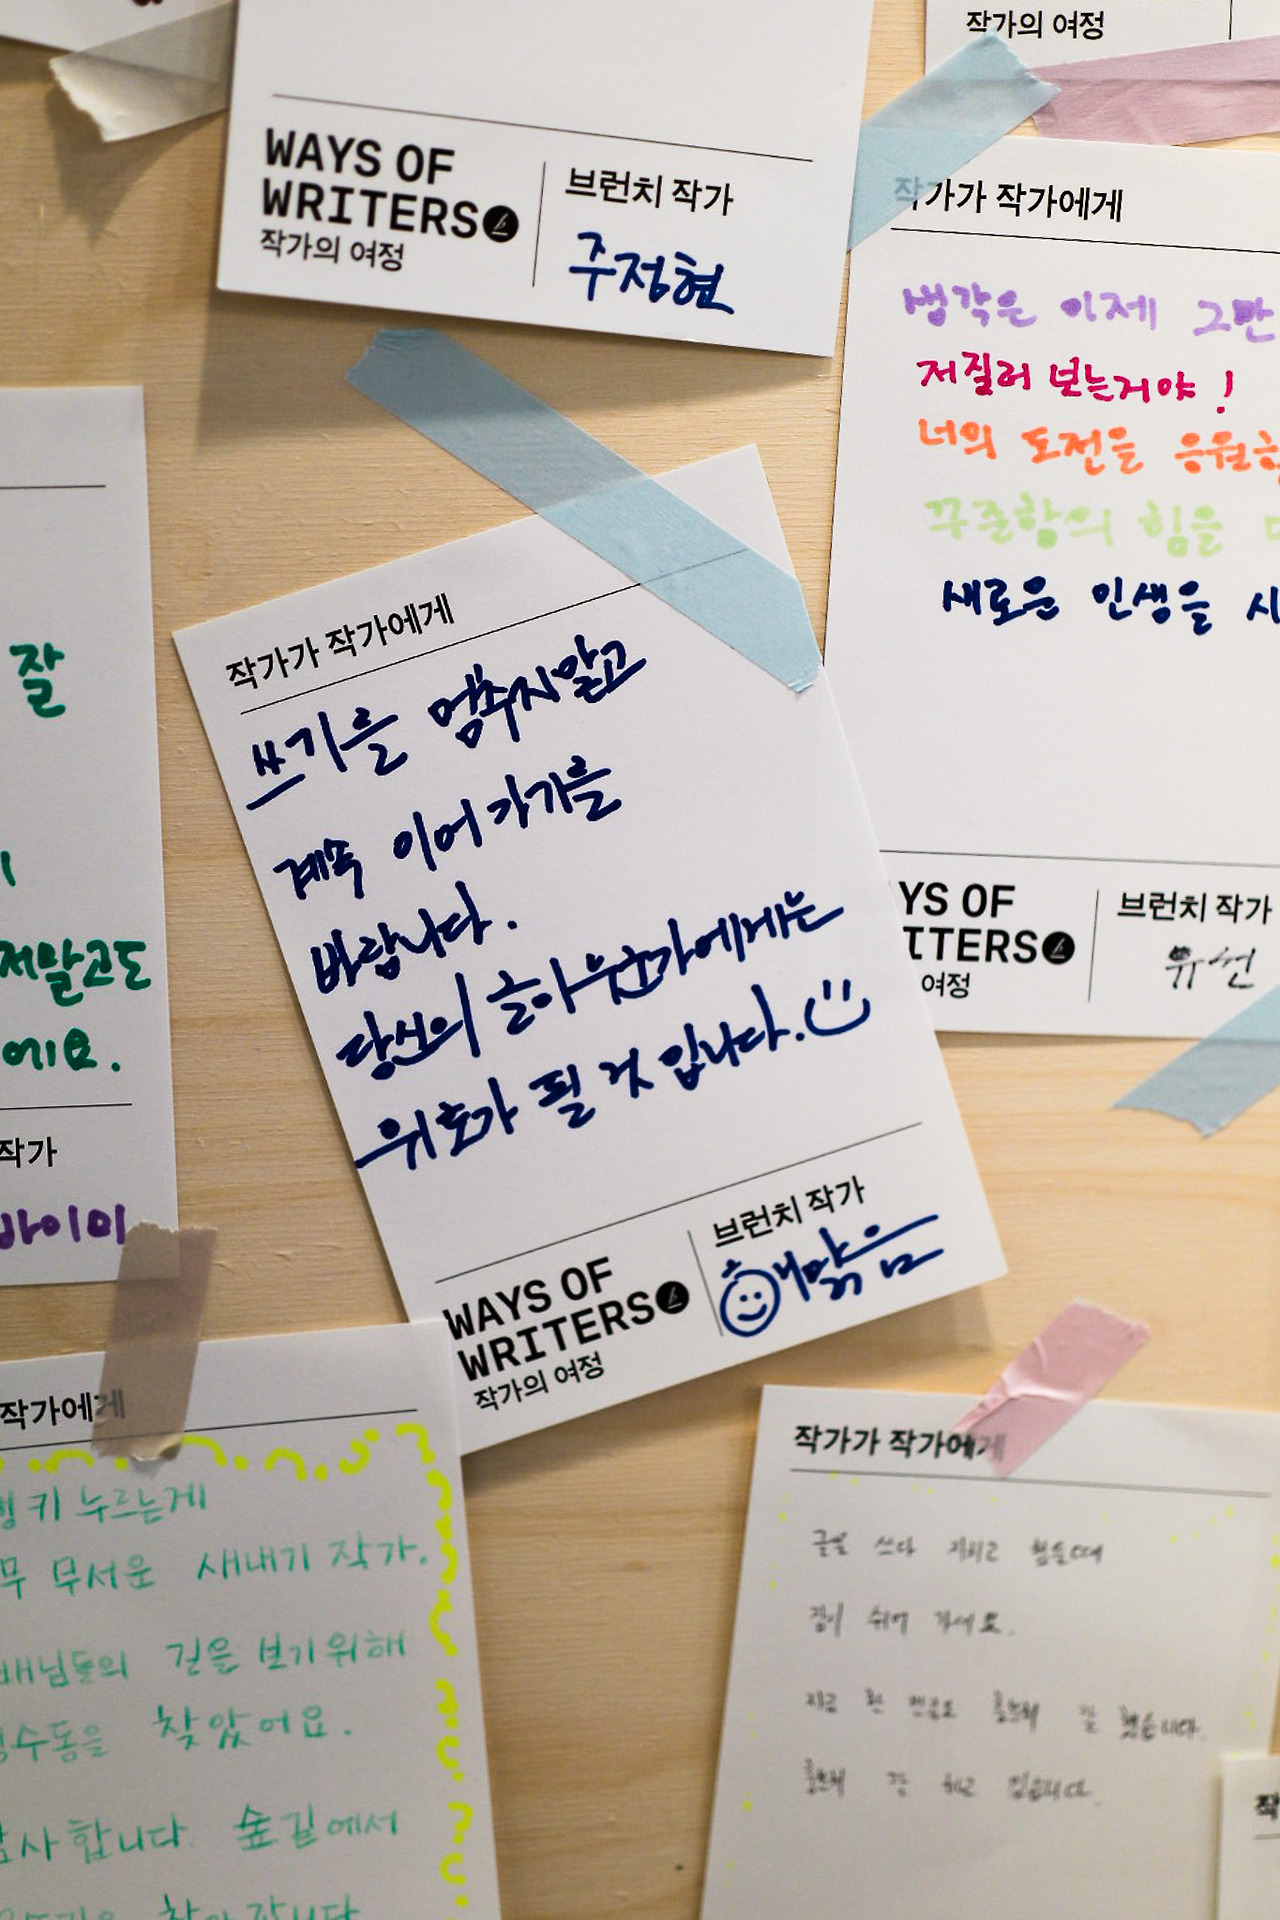 작가의 여정
WAYS OF
WRITERS
작가의 여정
브런치 작가
주정현
작가가 작가에게
생각은 이제 그만
저질러 보는거야!
너의 도전을 응원하
꾸준함의 힘을
새로운 인생을 시
YS OF
ITERS
여정
브런치 작가
유선
잘
저말고도
에요.
작가
바이미
작가가 작가에게
쓰기를 멈추지말고
계속 이어가기를
바랍니다.
당신의 글이 누군가에게는
위로가 될 것 입니다.
WAYS OF
WRITERS
작가의 여정
브런치 작가
해맑음
작가에게
키 누르는게
무 무서운 새내기 작가.
배님들의 길을 보기위해
수동을 찾았어요.
감사합니다. 숲길에서
작가가 작가에게
글을 쓰다 지치고 힘들때
쉬어 가세요.
지금 한 만큼도 충분히 잘 했습니다.
충분히 잘 하고 있습니다.